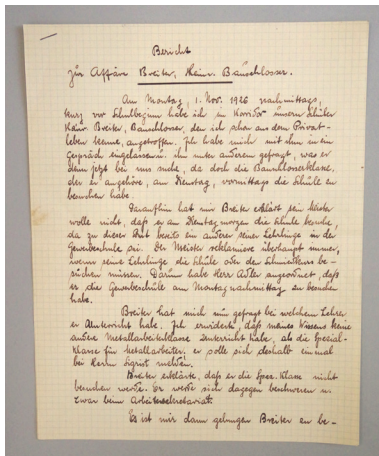 Bericht
zur Affäre Breiter, Heinr. Bauschlosser.
Am Montag, 1. Nov. 1926 nachmittags,
kurz vor Schulbeginn habe ich im Korridor unsern Schüler
Heinr. Breiter, Bauschlosser, den ich schon aus dem Privat-
leben kenne, angetroffen. Ich habe mich mit ihm in ein
Gespräch eingelassen u. ihn unter anderem gefragt, was er
denn jetzt bei uns mache, da doch die Bauschlosserklasse,
der er angehöre, am Dienstag, vormittags die Schule zu
besuchen habe.
Daraufhin hat mir Breiter erklärt sein Meister
wolle nicht, daß er am Dienstagmorgen die Schule besuche,
da zu dieser Zeit bereits ein anderer seiner Lehrlinge in der
Gewerbeschule sei. Der Meister reklamiere überhaupt immer,
wenn seine Lehrlinge die Schule oder den Schmiedkurs be-
suchen müssen. Darum habe Herr Adler angeordnet, daß
er die Gewerbeschule am Montagnachmittag zu besuchen
habe.
Breiter hat mich nun gefragt bei welchem Lehrer
er Unterricht habe. Ich erwiderte, daß meines Wissens keine
andere Metallarbeiterklasse Unterricht habe, als die Spezial-
klasse für Metallarbeiter, er solle sich deshalb einmal
bei Herrn Sigrist melden.
Breiter erklärte, daß er die Spez. Klasse nicht
besuchen werde. Er werde sich dagegen beschweren u.
zwar beim Arbeitersekretariat.
Es ist mir dann gelungen Breiter zu be-